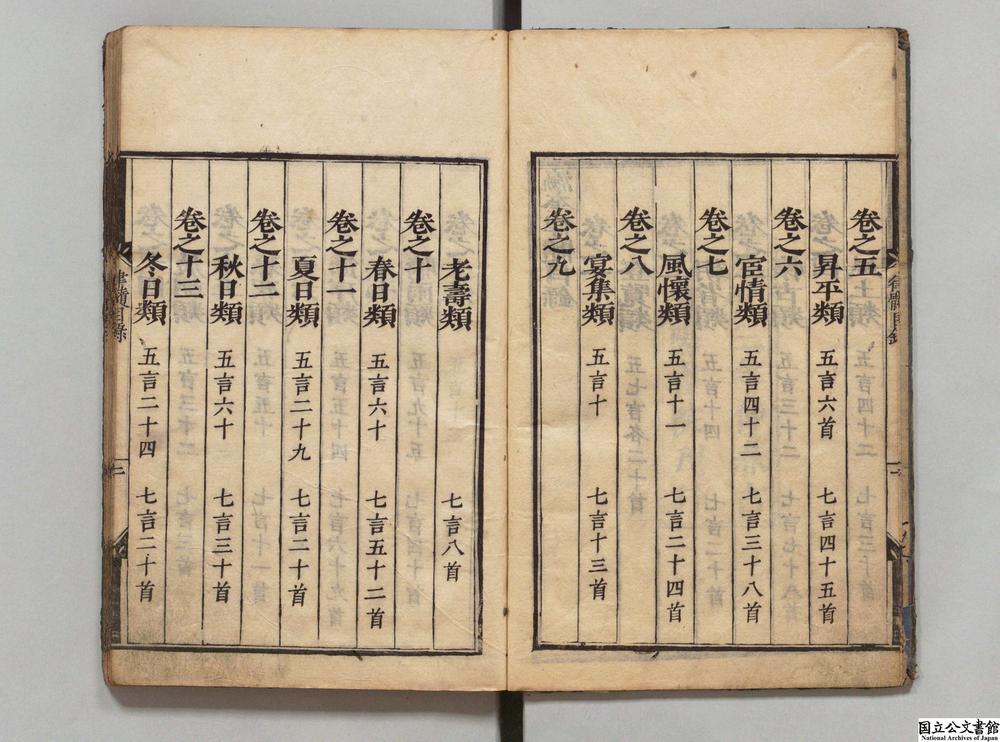 卷之五
昇平類 五言六首 七言四十五首
卷之六
宦情類 五言四十二 七言三十八首
卷之七
風懷類 五言十一 七言二十四首
卷之八
宴集類 五言十 七言十三首
卷之九
老壽類 七言八首
卷之十
春日類 五言六十 七言五十二首
卷之十一
夏日類 五言二十九 七言二十首
卷之十二
秋日類 五言六十 七言三十首
卷之十三
冬日類 五言二十四 七言二十首
律髓目錄
二
国立公文書館
National Archives of Japan